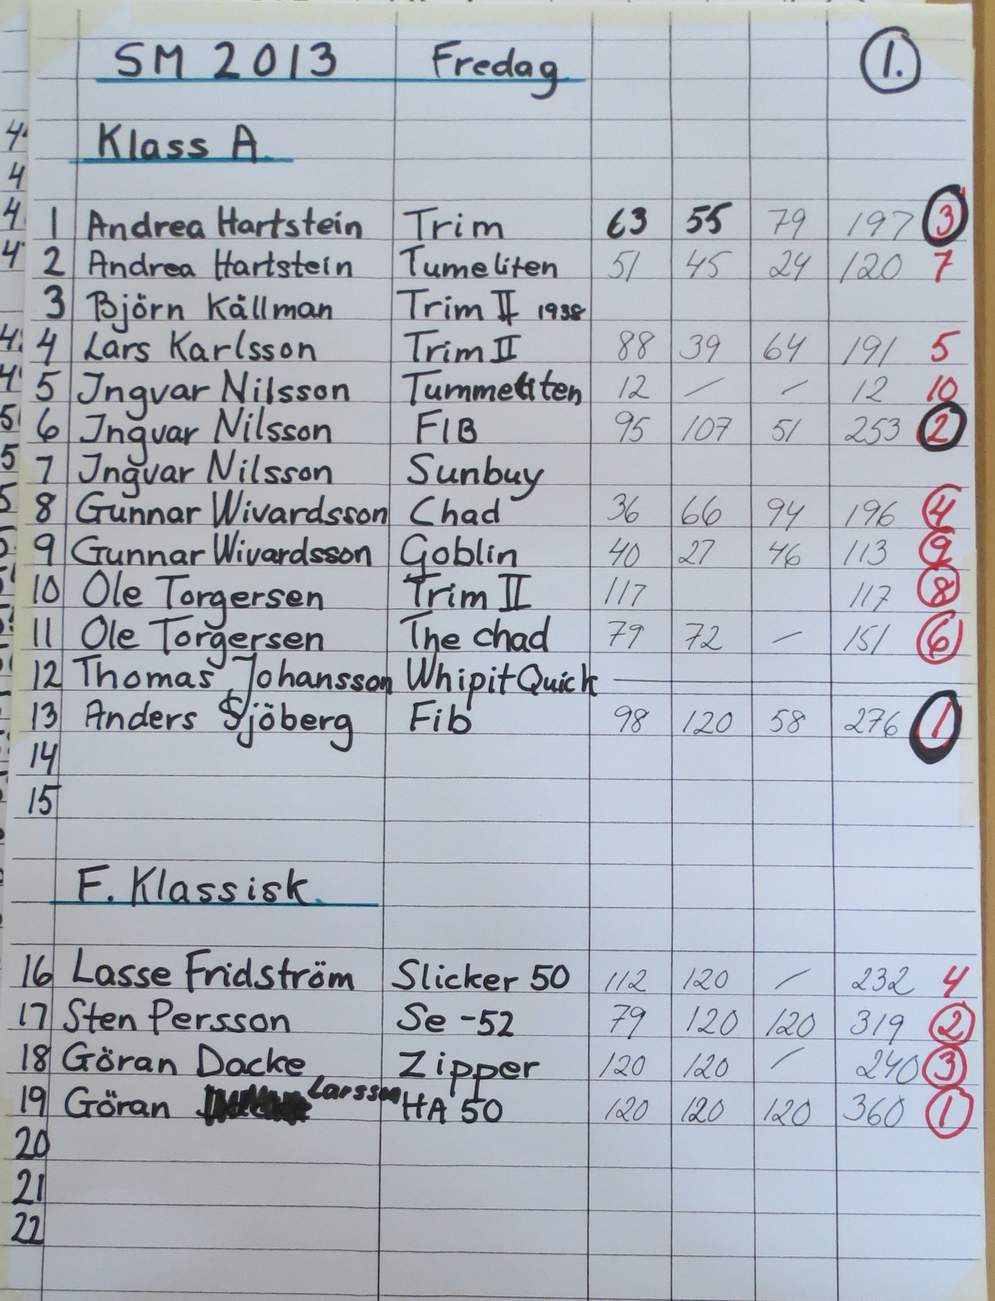 SM 2013 Fredag 1.
Klass A.
1 Andrea Hartstein Trim 63 55 79 197 3
2 Andrea Hartstein Tumeliten 51 45 24 120 7
3 Björn Källman Trim II 1938
4 Lars Karlsson Trim II 88 39 64 191 5
5 Ingvar Nilsson Tummetiten 12 / / 12 10
6 Ingvar Nilsson FIB 95 107 51 253 2
7 Ingvar Nilsson Sunbuy
8 Gunnar Wivardsson Chad 36 66 94 196 4
9 Gunnar Wivardsson Goblin 40 27 46 113 9
10 Ole Torgersen Trim II 117 117 8
11 Ole Torgersen The chad 79 72 / 151 6
12 Thomas Johansson Whipit Quick
13 Anders Sjöberg Fib 98 120 58 276 1
14
15
F. Klassisk.
16 Lasse Fridström Slicker 50 112 120 / 232 4
17 Sten Persson Se-52 79 120 120 319 2
18 Göran Dacke Zipper 120 120 / 240 3
19 Göran Larsson HA 50 120 120 120 360 1
20
21
22